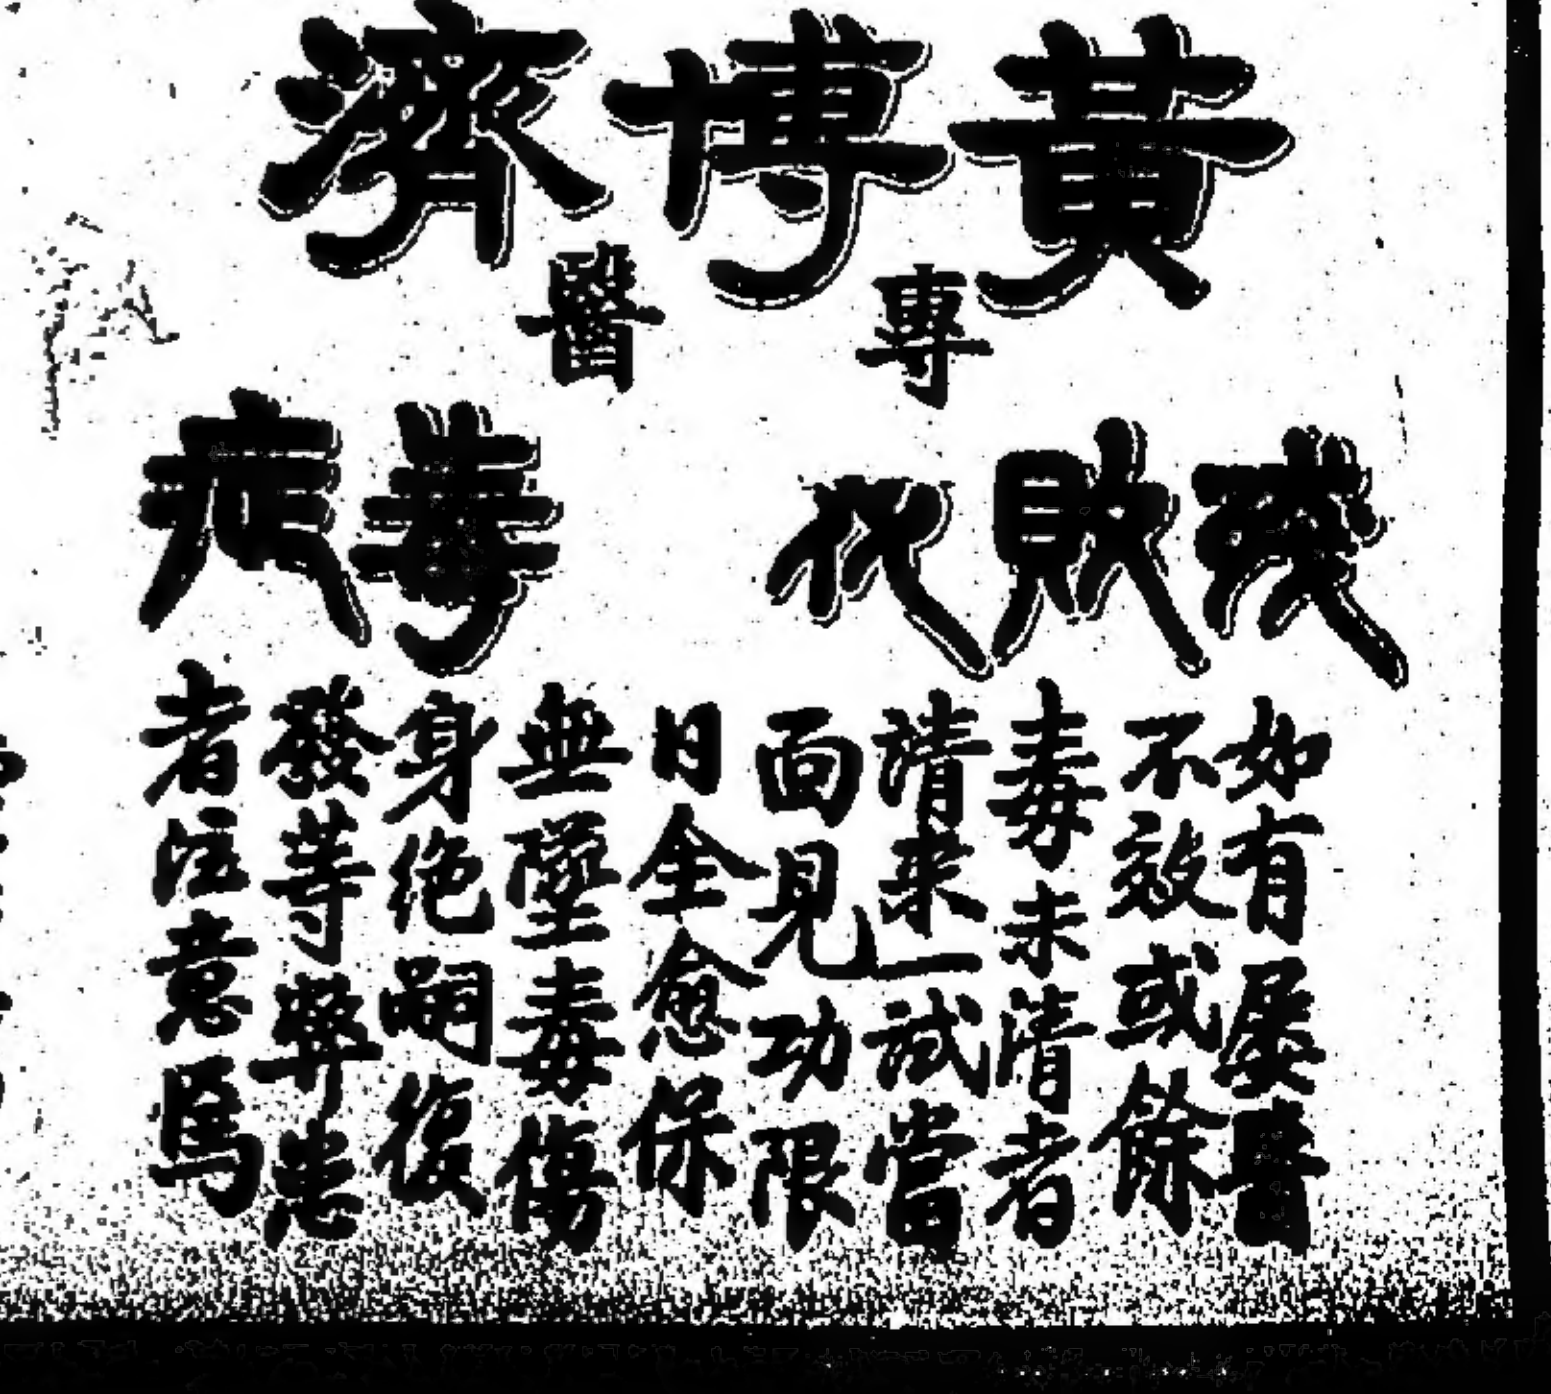 黃博濟
專醫
殘敗代
毒症
如有屡醫
不效或餘
毒未清者
請来一試當
面見功限
日全愈保
無墜毒傷
身绝嗣復
發等弊患
者注意焉